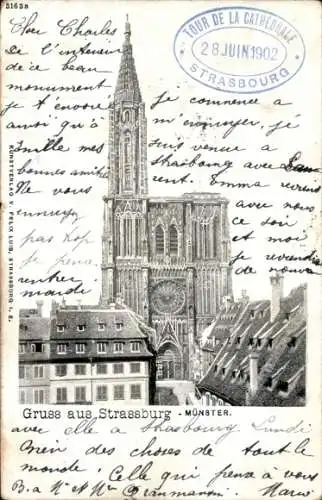 5165a
TOUR DE LA CATHÉDRALE
28 JUIN 1902
STRASBOURG
Cher Charles
De l'interieur
de ce beau
monument
je t'envoie
ainsi qu'à
famille mes
bonnes amitiés
Ne vous
ennuyez
pas
je pense
rentrer
mardi
Je commence a
m'ennuyer, je
suis venue a
Strasbourg avec Lau-
rent. Emma reviens
avec nous
ce soir
et moi
je reviendrai
de nouveau
KUNSTVERLAG FELIX LUIB, STRASSBURG i. E.
Gruss aus Strassburg - MÜNSTER.
avec elle a Strasbourg Lundi
bien des choses de tout le
monde. Celle qui pense à vous
B. a Mr et Mme